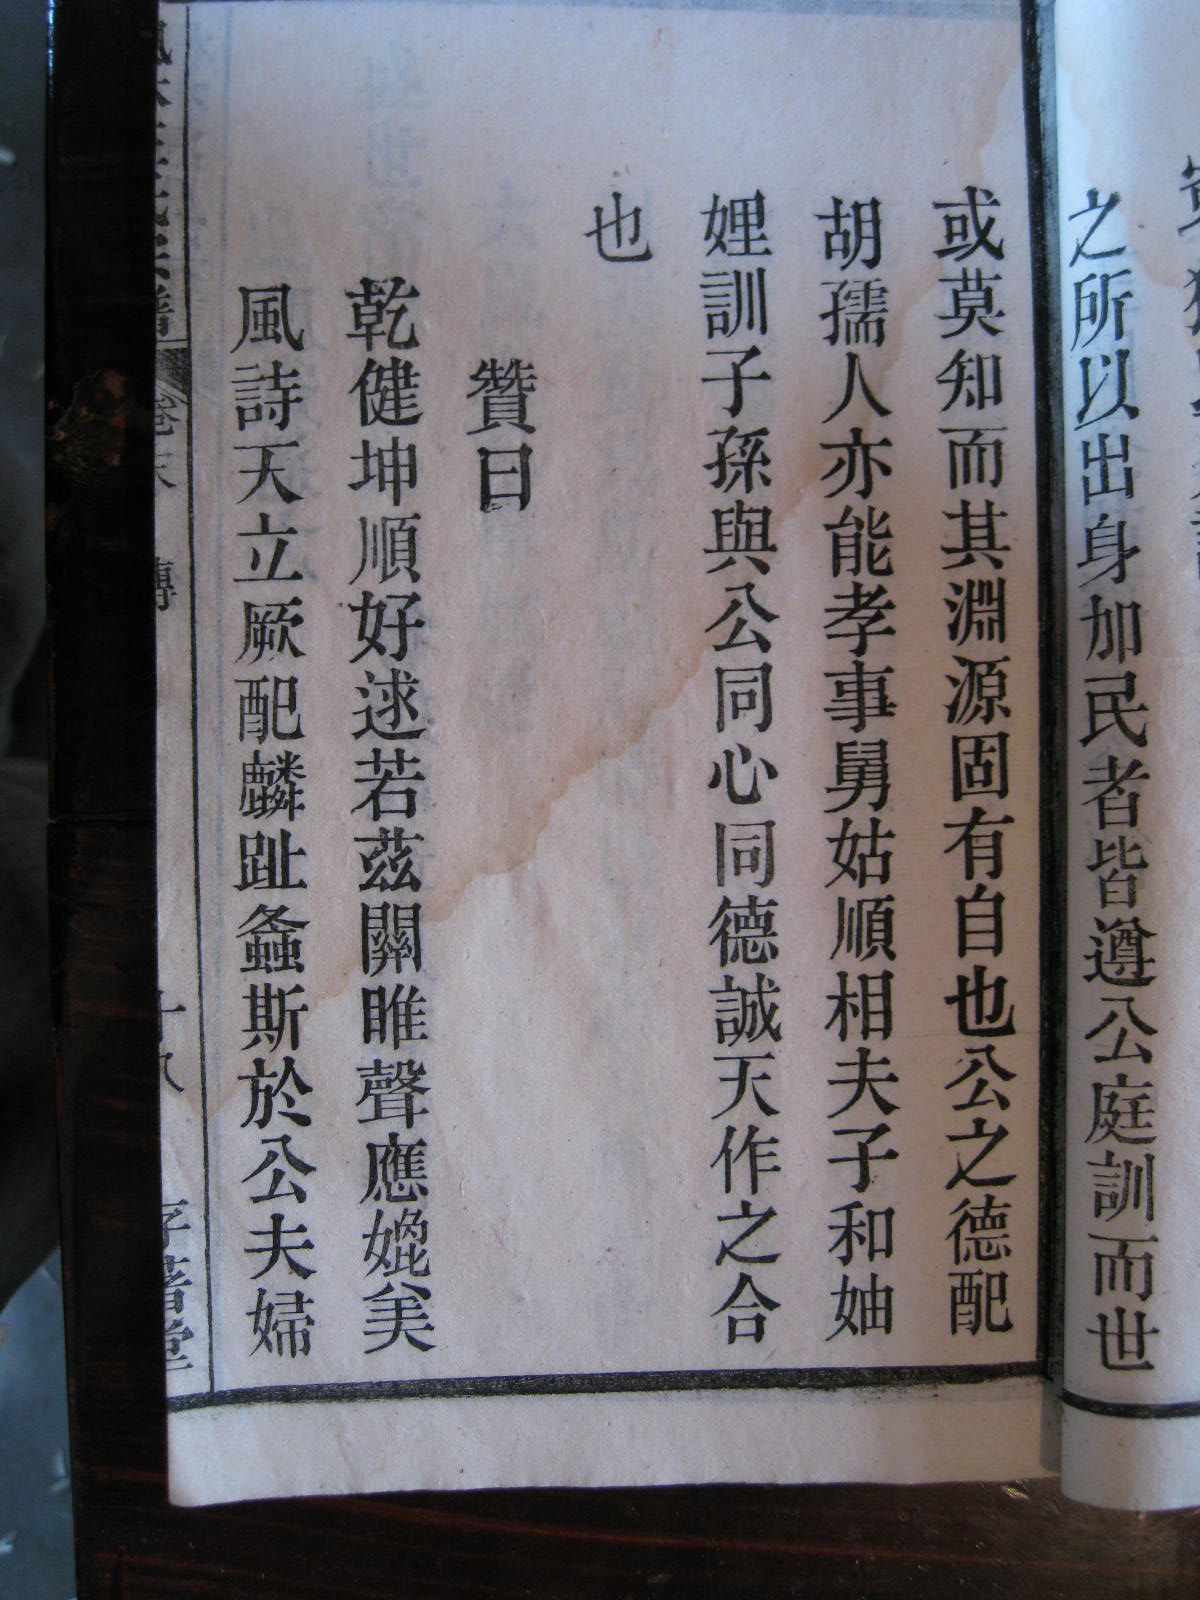 之所以出身加民者皆遵公庭訓而世
或莫知而其淵源固有自也公之德配
胡孺人亦能孝事舅姑順相夫子和妯
娌訓子孫與公同心同德誠天作之合
也
贊曰
乾健坤順好逑若茲關雎聲應媲美
風詩天立厥配麟趾螽斯於公夫婦
卷末 傳 十八